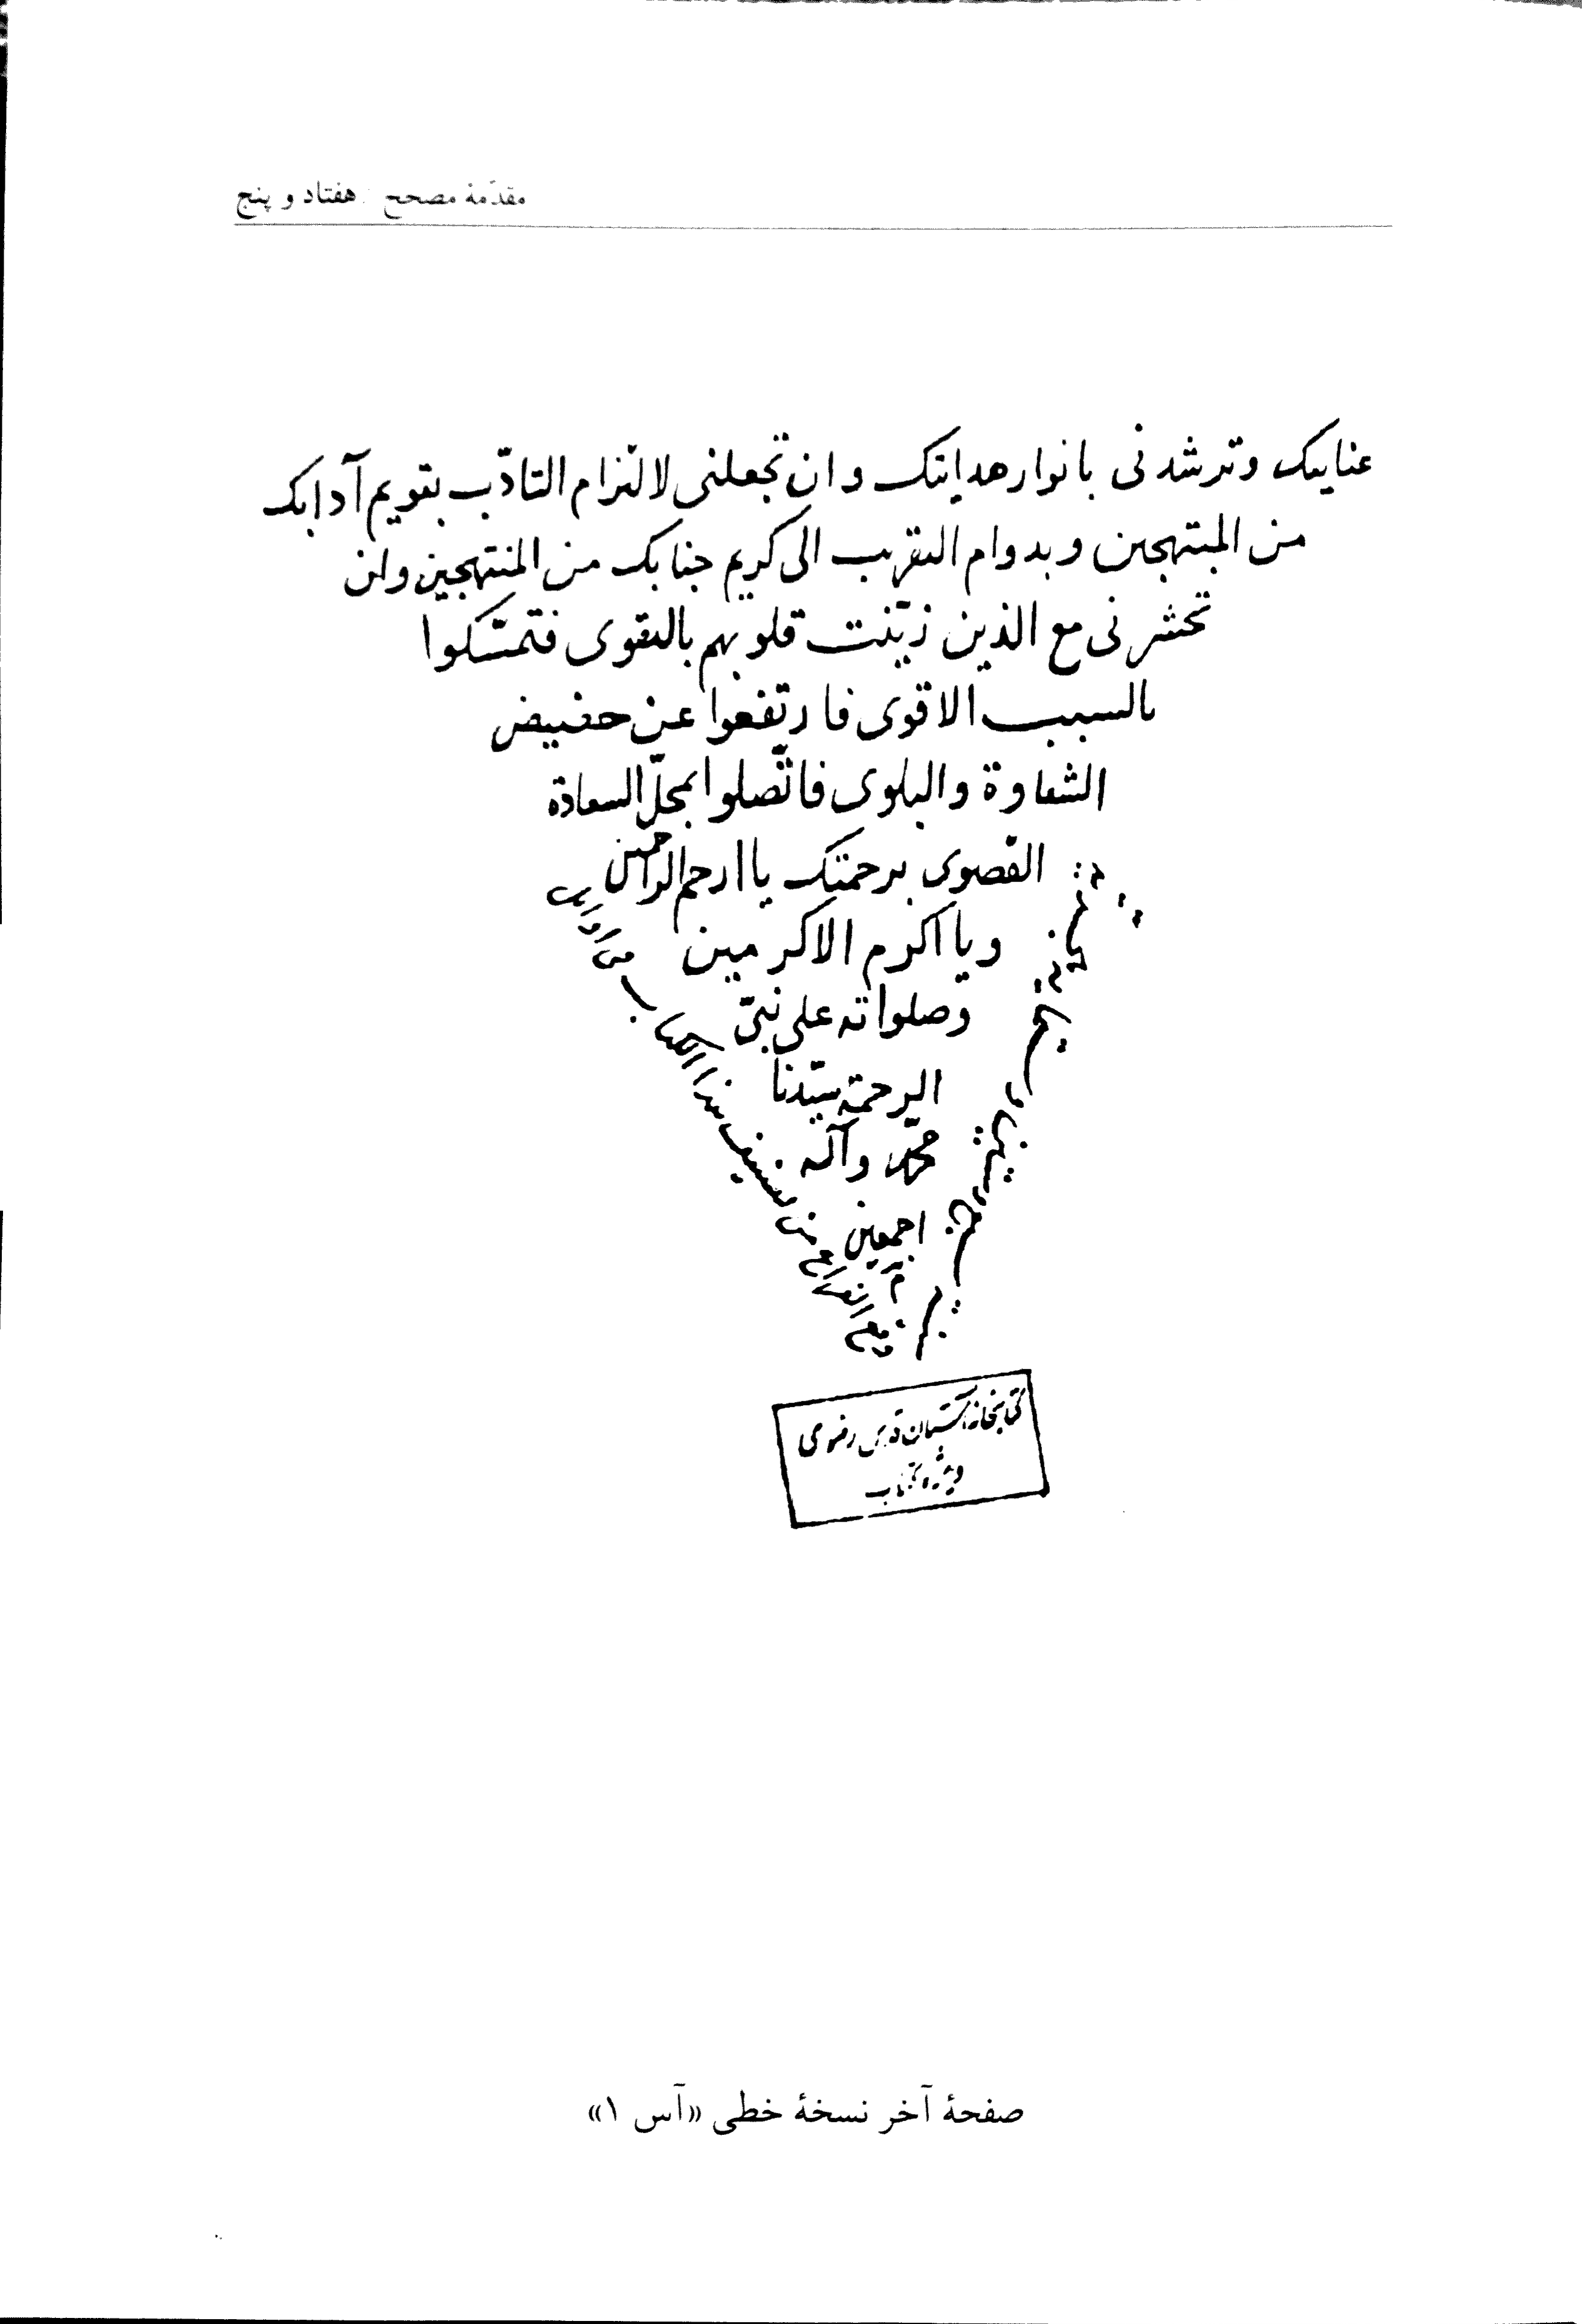 مقدّمهٔ مصحح / هفتاد و پنج
عنایتک وترشدنی بانوار هدایتک وان تجعلنی لالتزام التادّب بقویم آدابک
من المبتهجین وبدوام التقرب الی کریم جنابک من المنتهجین وان
تحشرنی مع الذین زیّنت قلوبهم بالتقوی فتمسّکوا
بالسبب الاقوی فارتفعوا عن حضیض
الشقاوة والبلوی فاتّصلوا بمحلّ السعادة
القصوی برحمتک یا ارحم الراحمین
ویا اکرم الاکرمین
وصلواته علی نبیّ
الرحمة سیّدنا
محمّد وآله
اجمعین
م
کتابخانه آستان قدس رضوی
ویژه کتاب
صفحهٔ آخر نسخهٔ خطی «آس ۱»